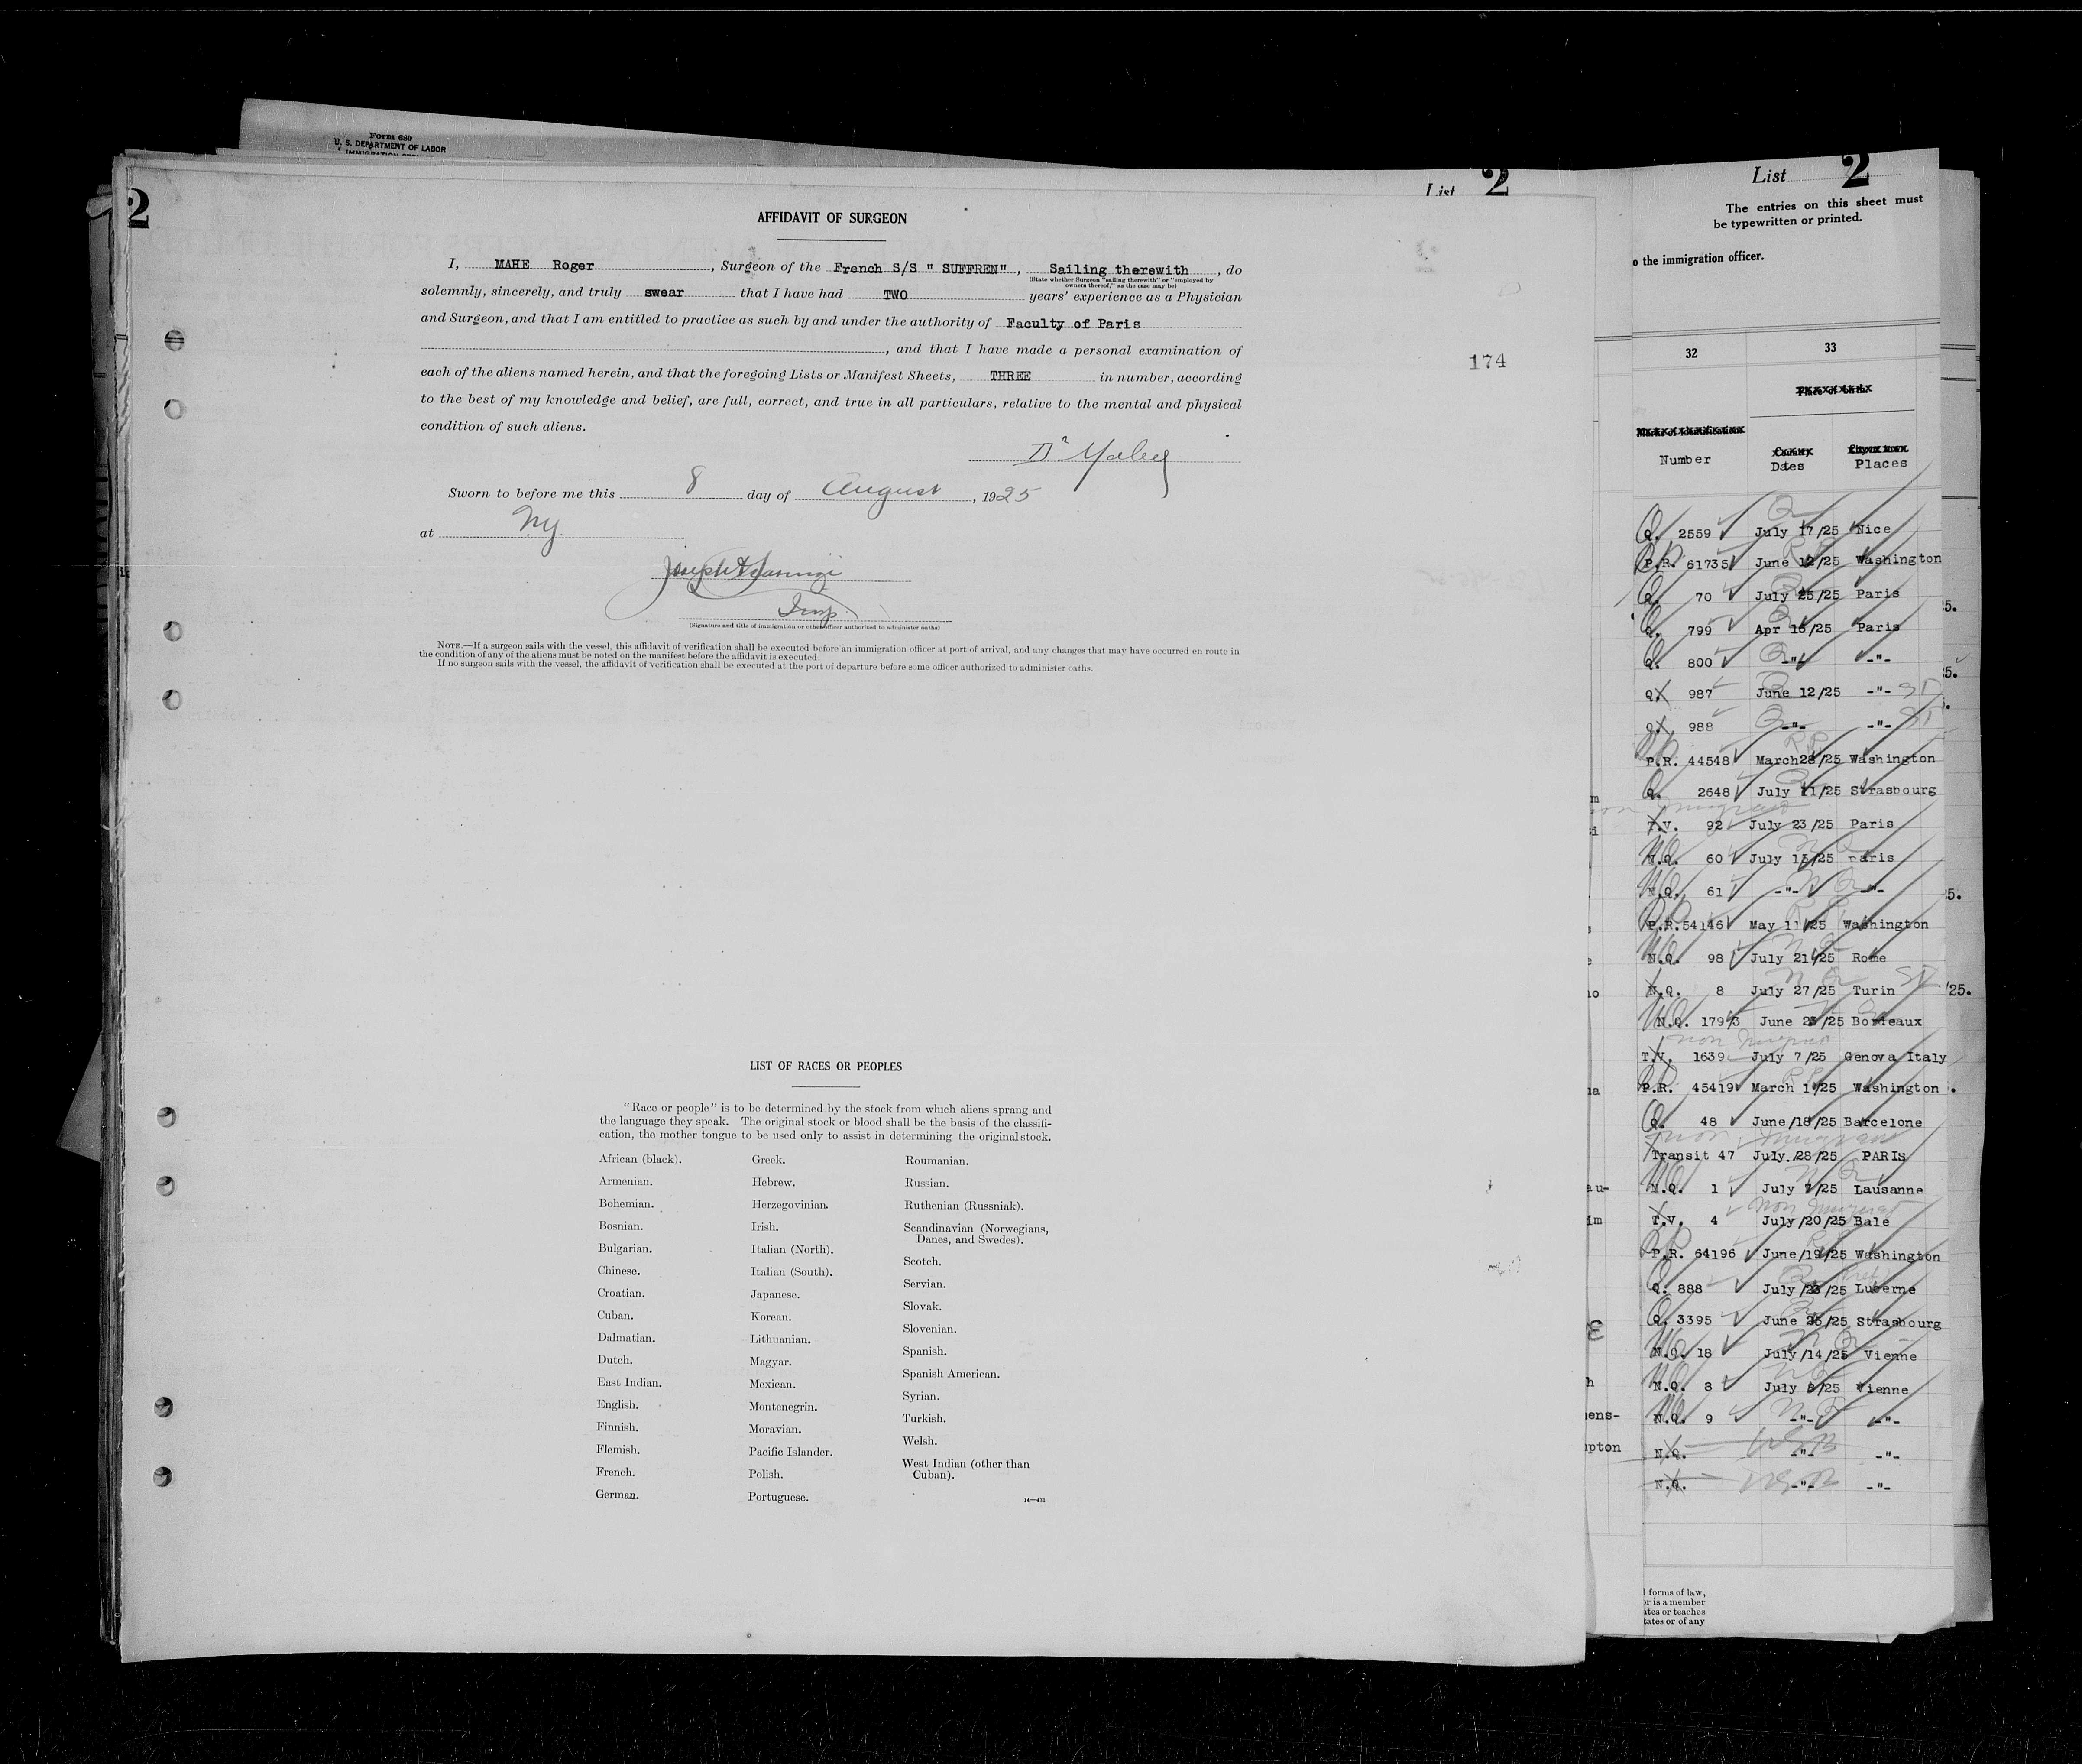 Form 689
U. S. DEPARTMENT OF LABOR
2
List 2
AFFIDAVIT OF SURGEON
I, MAHE Roger, Surgeon of the French S/S " SUFFREN", Sailing therewith, do
(State whether Surgeon "sailing therewith" or "employed by
owners thereof," as the case may be)
solemnly, sincerely, and truly swear that I have had TWO years' experience as a Physician
and Surgeon, and that I am entitled to practice as such by and under the authority of Faculty of Paris
, and that I have made a personal examination of
174
each of the aliens named herein, and that the foregoing Lists or Manifest Sheets, THREE in number, according
to the best of my knowledge and belief, are full, correct, and true in all particulars, relative to the mental and physical
condition of such aliens.
Sworn to before me this 8 day of August, 1925
at NY.
Insp.
(Signature and title of immigration or other officer authorized to administer oaths)
NOTE.—If a surgeon sails with the vessel, this affidavit of verification shall be executed before an immigration officer at port of arrival, and any changes that may have occurred en route in
the condition of any of the aliens must be noted on the manifest before the affidavit is executed.
If no surgeon sails with the vessel, the affidavit of verification shall be executed at the port of departure before some officer authorized to administer oaths.
LIST OF RACES OR PEOPLES
"Race or people" is to be determined by the stock from which aliens sprang and
the language they speak. The original stock or blood shall be the basis of the classifi-
cation, the mother tongue to be used only to assist in determining the original stock.
African (black).
Armenian.
Bohemian.
Bosnian.
Bulgarian.
Chinese.
Croatian.
Cuban.
Dalmatian.
Dutch.
East Indian.
English.
Finnish.
Flemish.
French.
German.
Greek.
Hebrew.
Herzegovinian.
Irish.
Italian (North).
Italian (South).
Japanese.
Korean.
Lithuanian.
Magyar.
Mexican.
Montenegrin.
Moravian.
Pacific Islander.
Polish.
Portuguese.
Roumanian.
Russian.
Ruthenian (Russniak).
Scandinavian (Norwegians,
Danes, and Swedes).
Scotch.
Servian.
Slovak.
Slovenian.
Spanish.
Spanish American.
Syrian.
Turkish.
Welsh.
West Indian (other than
Cuban).
14—431
List 2
The entries on this sheet must
be typewritten or printed.
o the immigration officer.
32 33
Number Dates Places
Q. 2559 July 17/25 Nice
P.R. 61735 June 12/25 Washington
Q. 70 July 25/25 Paris
Q. 799 Apr 16/25 Paris
Q. 800 -"- -"-
Q. 987 June 12/25 -"-
Q. 988 -"- -"-
P.R. 44548 March 28/25 Washington
Q. 2648 July 11/25 Strasbourg
T.V. 92 July 23/25 Paris
N.Q. 60 July 15/25 Paris
N.Q. 61 -"- -"-
P.R. 54146 May 11/25 Washington
N.Q. 98 July 21/25 Rome
N.Q. 8 July 27/25 Turin
N.Q. 17943 June 25/25 Bordeaux
T.V. 1639 July 7/25 Genova Italy
P.R. 45419 March 1/25 Washington
Q. 48 June/18/25 Barcelone
Transit 47 July.28/25 PARIS
N.Q. 1 July 7/25 Lausanne
T.V. 4 July/20/25 Bale
P.R. 64196 June/19/25 Washington
Q. 888 July/23/25 Lucerne
Q. 3395 June 25/25 Strasbourg
N.Q. 18 July/14/25 Vienne
N.Q. 8 July 8/25 Vienne
N.Q. 9 -"- -"-
N.Q. -"- -"-
N.Q. -"- -"-
forms of law,
or is a member
ates or teaches
tates or of any